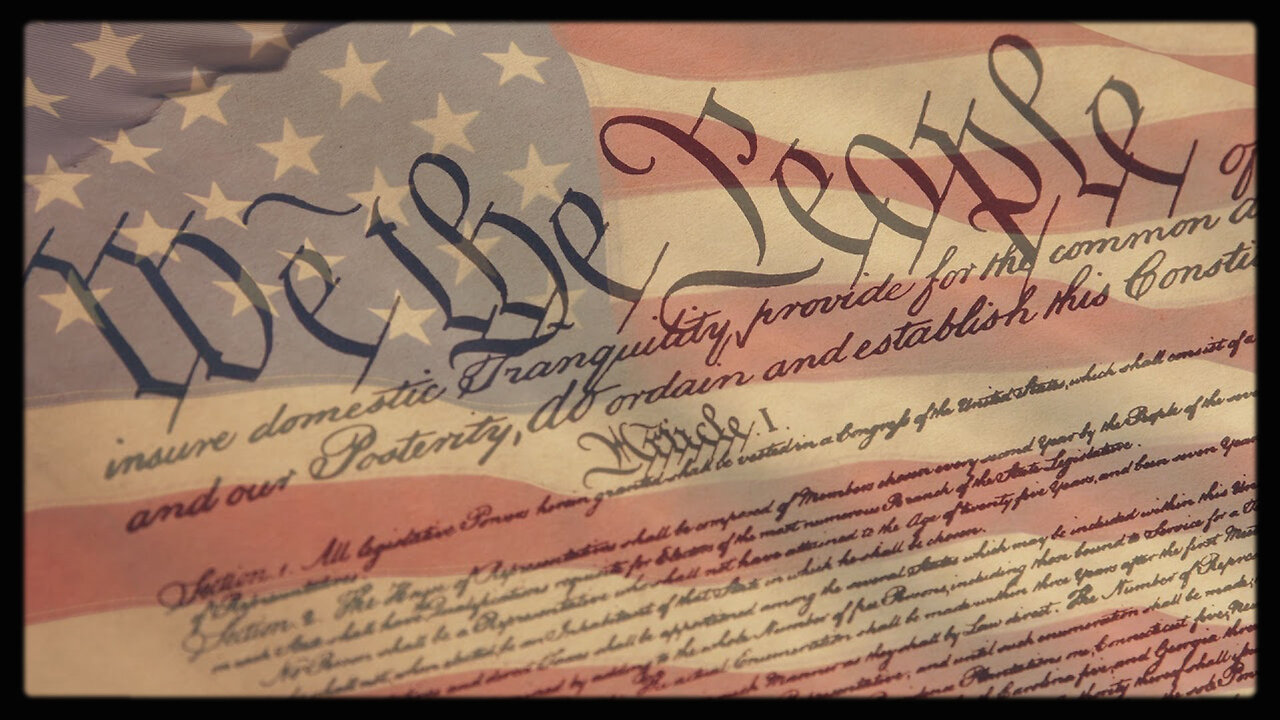 We the People of
insure domestic Tranquility, provide for the common
and our Posterity, do ordain and establish this Consti
Article. I.
Section. 1. All legislative Powers herein granted shall be vested in a Congress of the United States, which shall consist of a
of Representatives.
Section. 2. The House of Representatives shall be composed of Members chosen every second Year by the People of the
in each State shall have Qualifications requisite for Electors of the most numerous Branch of the State Legislature.
No Person shall be a Representative who shall not have attained to the Age of twenty five Years, and been seven Years
and who shall not, when elected, be an Inhabitant of that State in which he shall be chosen.
shall be apportioned among the several States which may be included within this
by adding to the whole Number of free Persons, including those bound to Service for a
The actual Enumeration shall be made within three Years after the first
Manner as they shall by Law direct. The Number of
and until such enumeration shall be made,
Plantations one, Connecticut five,
Carolina five, and Georgia three